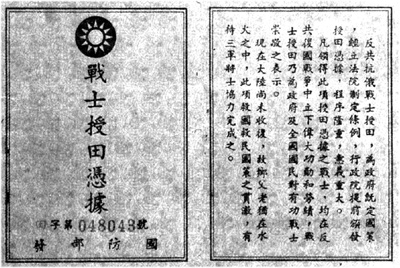 戰士授田憑據
字第048043號
國防部發
反共抗俄戰士授田,為政府既定國策
,經立法院制定條例,行政院提前頒發
授田憑據,程序隆重,意義重大。
凡領得此項授田憑據之戰士,均在反
共復國戰爭中立下偉大功勳和勞績,戰
士授田乃為政府及全國國民對有功戰士
崇敬之表示。
現在大陸尚未收復,故鄉父老猶在水
火之中,此項救國救民國策之貫澈,有
待三軍將士協力完成之。